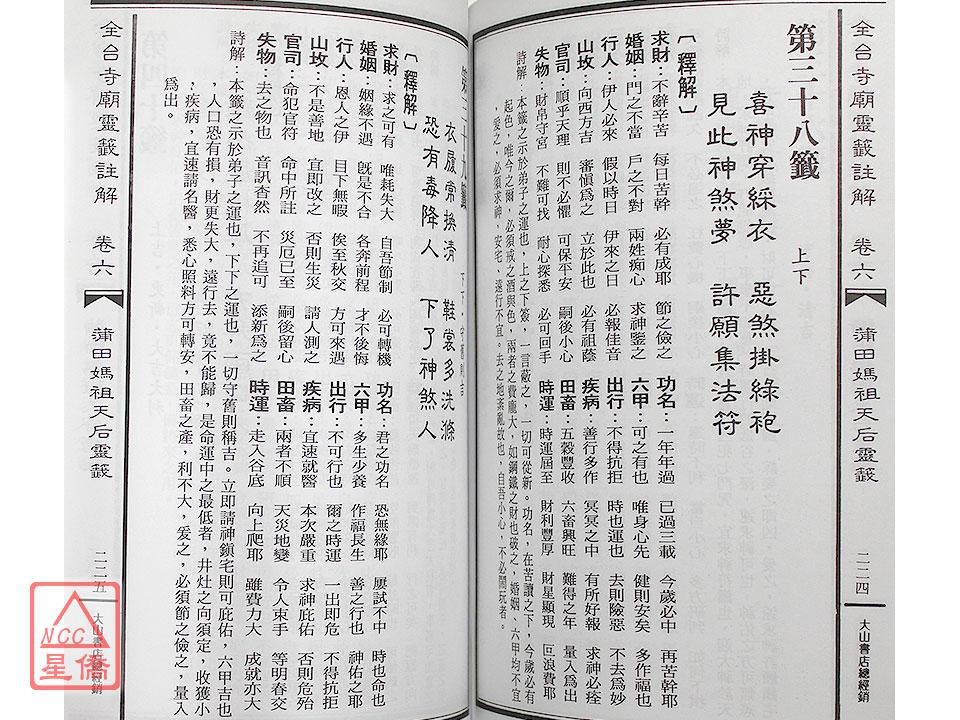 全台寺廟靈籤註解　卷六　蒲田媽祖天后靈籤　二二四　大山書店總經銷
第三十八籤　上下
喜神穿綵衣　惡煞掛綠袍
見此神煞夢　許願集法符
〔釋解〕
求財：不辭辛苦　每日苦幹　必有成耶　節之儉之　功名：一年年過　已過三載　今歲必中　再苦幹耶
婚姻：門之不當　戶之不對　兩姓痴心　求神鑒之　六甲：可之有也　唯身心先　健則安矣　多作福也
行人：伊人必來　假以時日　伊來之日　必報佳音　出行：不得抗拒　時也運也　去則險惡　不去為妙
山坟：向西方吉　審愼為之　立於此也　必有祖蔭　疾病：善行多作　冥冥之中　有所好報　求神必痊
官司：順乎天理　則不必懼　可保平安　嗣後小心　田畜：五穀豐收　六畜興旺　難得之年　量入為出
失物：財帛守宮　不難可找　耐心探悉　必可回手　時運：時運屆至　財利豐厚　財星顯現　回浪費耶
詩解：本籤之示於弟子之運也，上下之簽，一言蔽之，一切可從新。功名，在苦讀之下，今歲必有
起色，唯今之爾，必須戒之酒與色，兩者之費龐大，如鋼鐵之財也破之，婚姻、六甲均不宜
，愛之，必須求神，安宅、遠行不宜。去之地紊亂故也，自吾小心，不必鬧玩者。
第三十九籤　下下
衣履常換清　鞋裳多洗滌
恐有毒降人　下了神煞人
〔釋解〕
求財：求之可有　唯耗失大　自吾節制　必可轉機　功名：君之功名　恐無緣耶　屢試不中　時也命也
婚姻：姻緣不遇　旣是不合　各奔前程　才不後悔　六甲：多生少養　作福長生　善之行也　神佑之耶
行人：恩人之伊　目下無暇　俟至秋交　方可來遇　出行：不可行也　爾之時運　一出即危　不得抗拒
山坟：不是善地　宜即改之　否則生災　請人測之　疾病：宜速就醫　本次嚴重　求神庇佑　否則危殆
官司：命犯官符　命中所註　災厄已至　嗣後留心　田畜：兩者不順　天災地變　令人束手　等明春交
失物：去之物也　音訊杳然　不再追可　添新為之　時運：走入谷底　向上爬耶　雖費力大　成就亦大
詩解：本籤之示於弟子之運也，下下之運也，一切守舊則稱吉。立即請神鎭宅則可庇佑，六甲吉也
，人口恐有損，財更失大，遠行去，竟不能歸，是命運中之最低者，井灶之向須定，收獲小
，疾病，宜速請名醫，悉心照料方可轉安，田畜之產，利不大，爰之，必須節之儉之，量入
為出。
全台寺廟靈籤註解　卷六　蒲田媽祖天后靈籤　二二五　大山書店總經銷
NCC
星僑